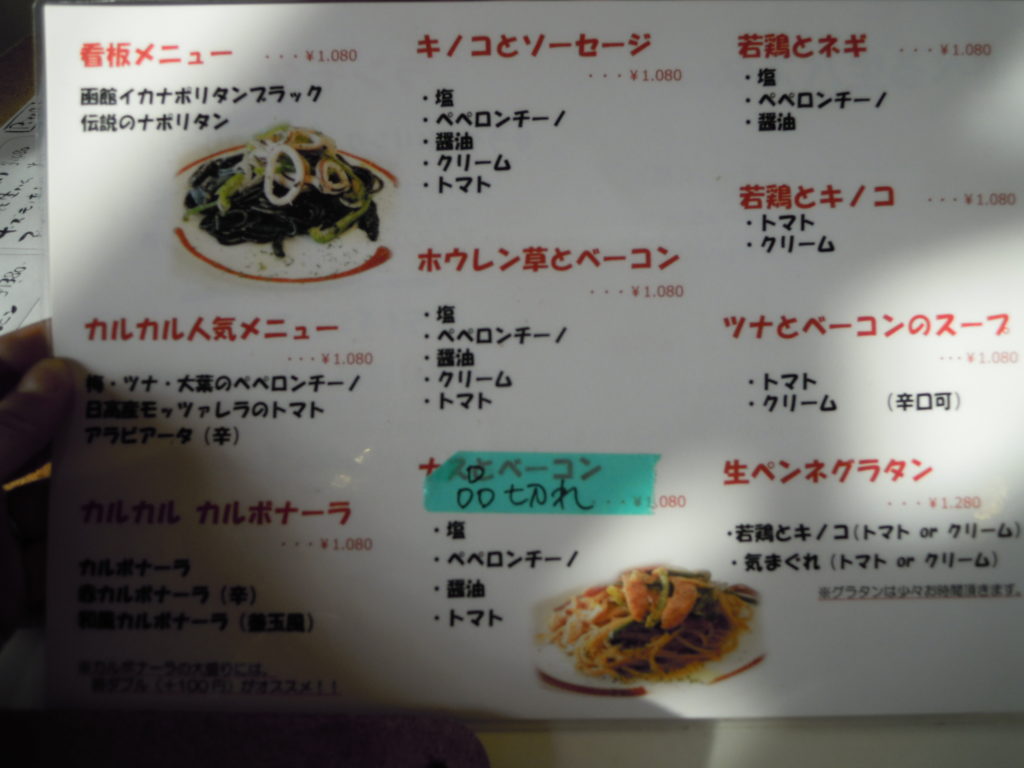 看板メニュー ・・・￥1.080
函館イカナポリタンブラック
伝説のナポリタン
カルカル人気メニュー
・・・￥1.080
梅・ツナ・大葉のペペロンチーノ
日高産モッツァレラのトマト
アラビアータ（辛）
カルカル カルボナーラ
・・・￥1.080
カルボナーラ
赤カルボナーラ（辛）
和風カルボナーラ（釜玉風）
※カルボナーラの大盛りには、
卵ダブル（＋100円）がオススメ！！
キノコとソーセージ
・・・￥1.080
・塩
・ペペロンチーノ
・醤油
・クリーム
・トマト
ホウレン草とベーコン
・・・￥1.080
・塩
・ペペロンチーノ
・醤油
・クリーム
・トマト
ナスとベーコン
品切れ ・・￥1.080
・塩
・ペペロンチーノ
・醤油
・トマト
若鶏とネギ ・・・￥1.080
・塩
・ペペロンチーノ
・醤油
若鶏とキノコ ・・・￥1.080
・トマト
・クリーム
ツナとベーコンのスープ
・・・￥1.080
・トマト
・クリーム （辛口可）
生ペンネグラタン
・・・￥1.280
・若鶏とキノコ（トマト or クリーム）
・気まぐれ（トマト or クリーム）
※グラタンは少々お時間頂きます。